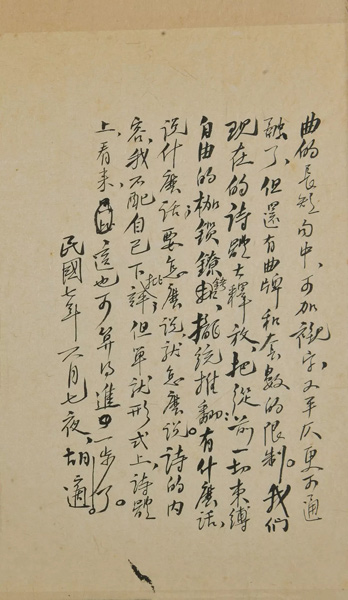 曲的長短句中,可加襯字,又平仄更可通
融了,但還有曲牌和套數的限制。我們
現在的詩體大釋放,把從前一切束縛
自由的枷鎖鐐銬,攏統推翻:有什麼話,
說什麼話;要怎麼說就怎麼說。詩的內
容,我不配自己下批評,但單就形式上,詩體
上,看來,這也可算得進一步了。
民國七年六月七夜,胡適。